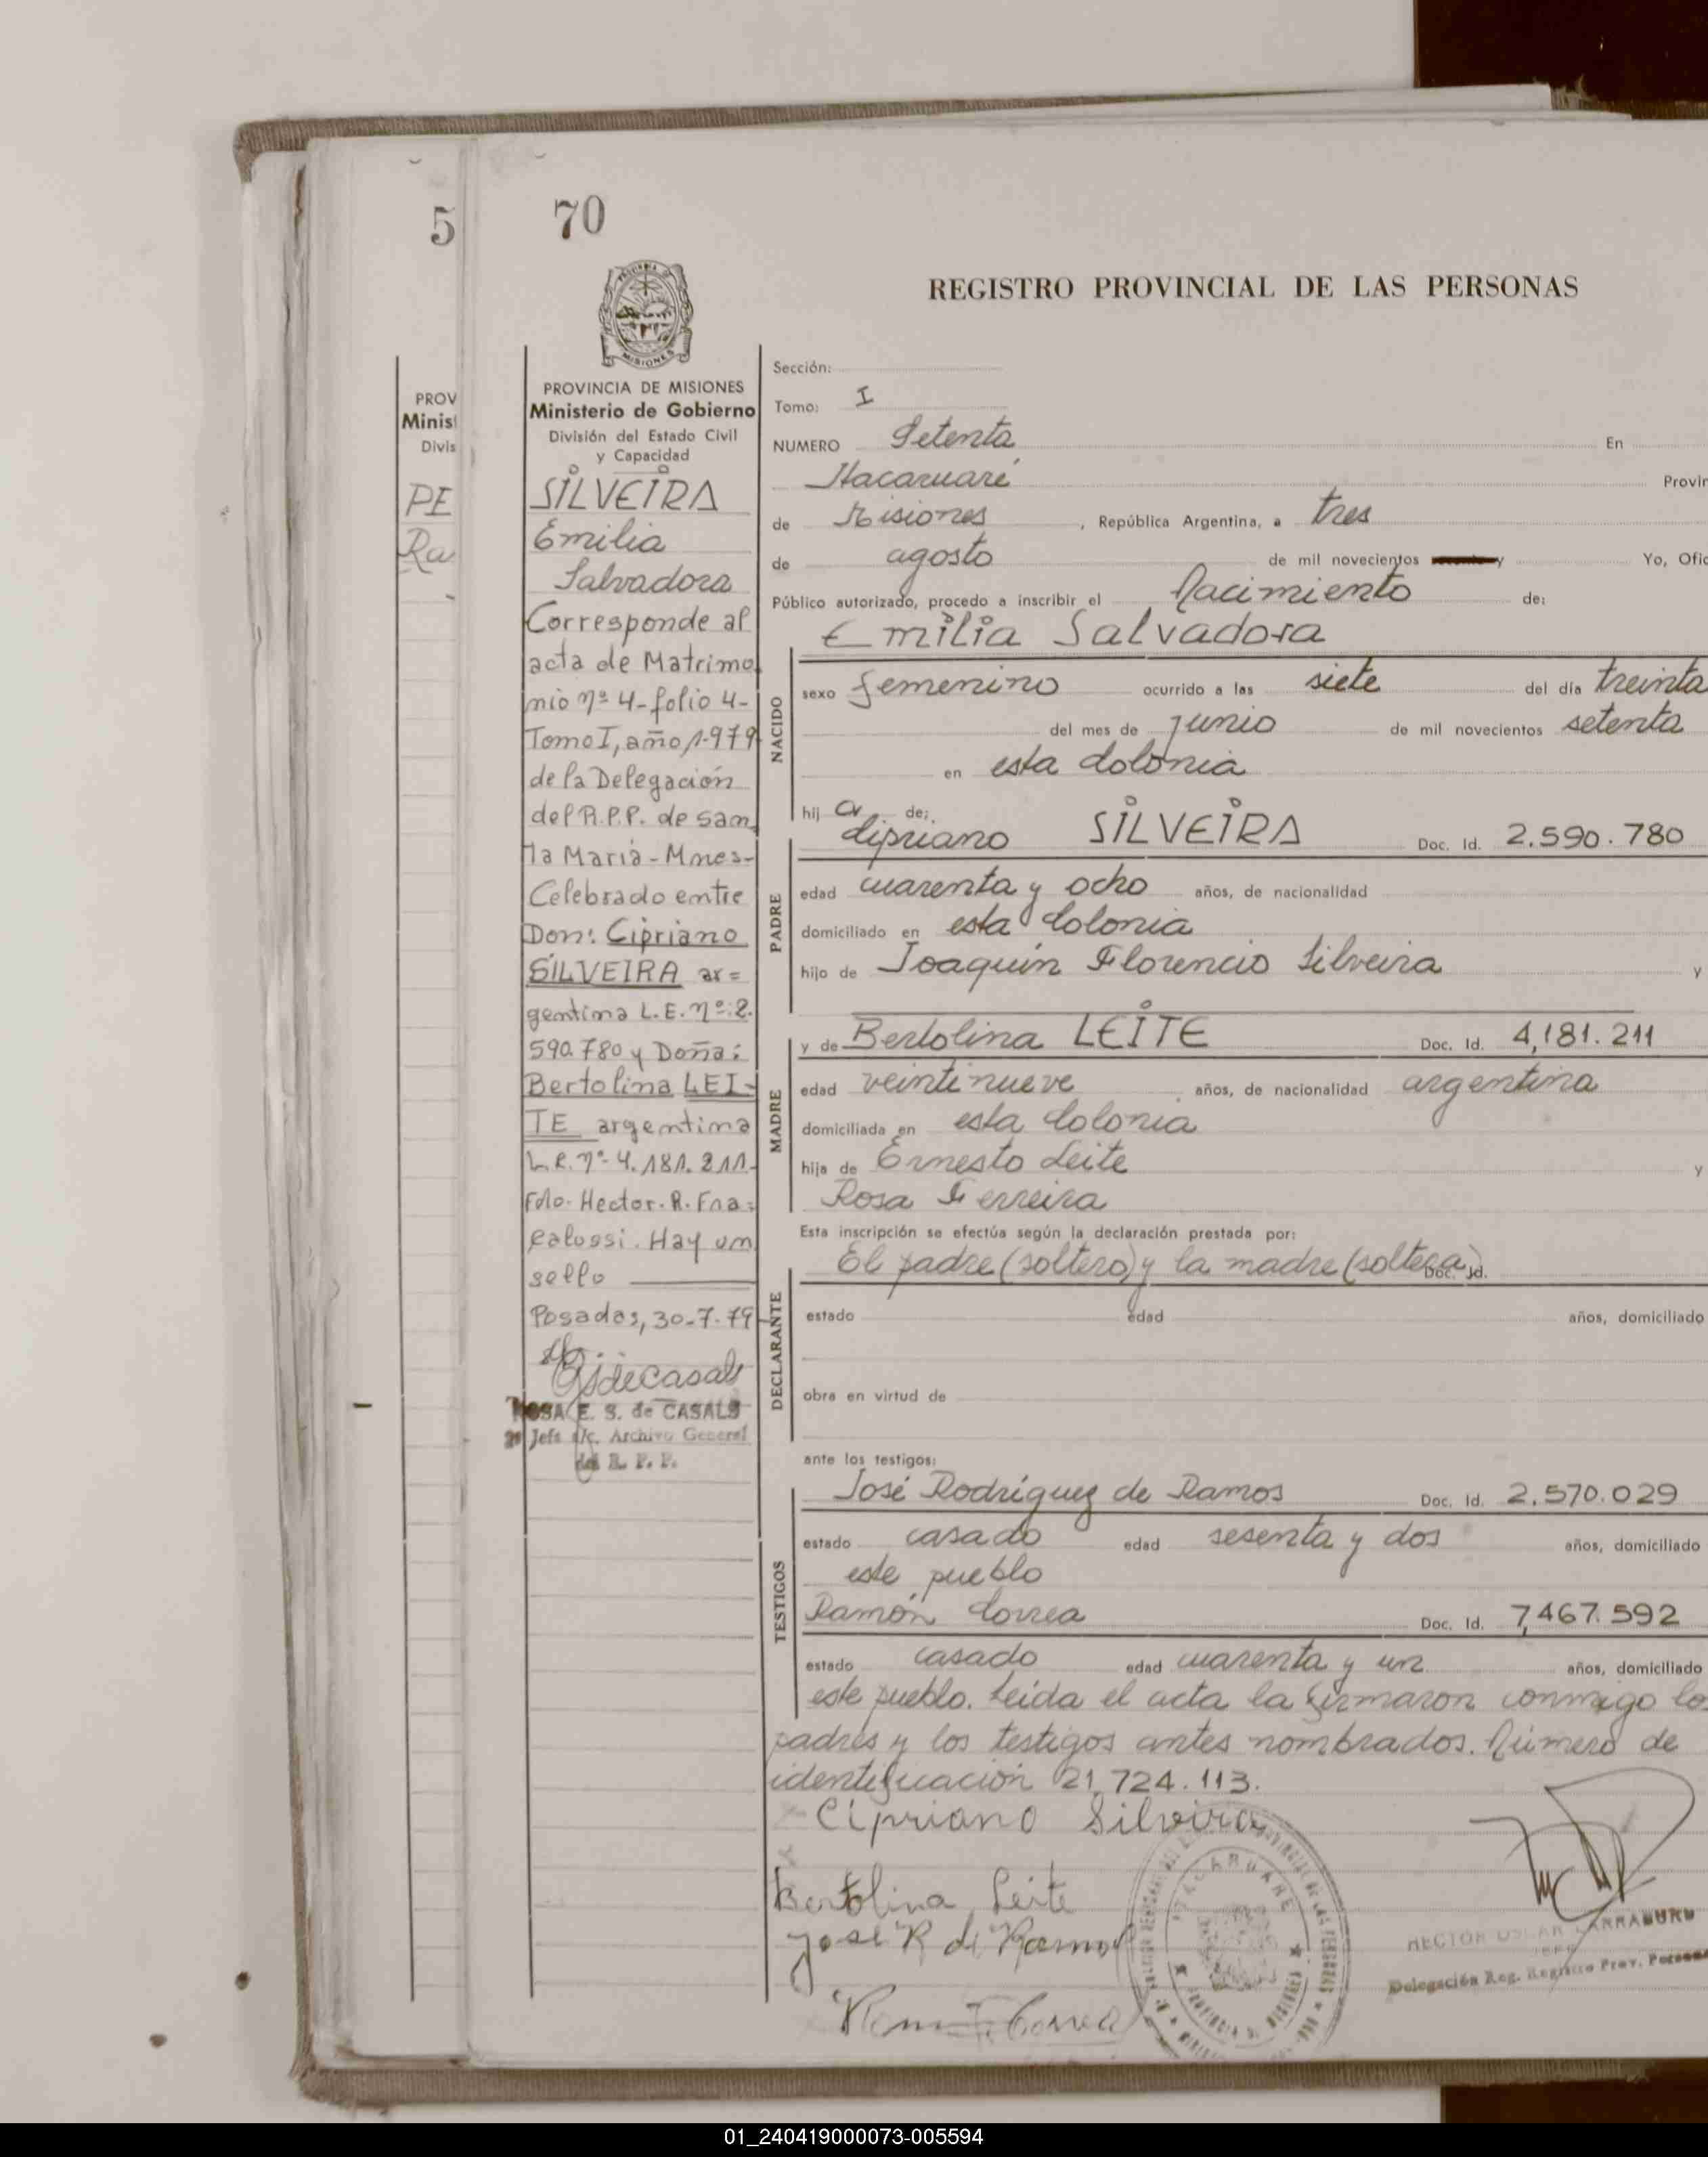 5
70
REGISTRO PROVINCIAL DE LAS PERSONAS
MISIONES
PROV
Minist
Divis
PE
Ra
PROVINCIA DE MISIONES
Ministerio de Gobierno
División del Estado Civil
y Capacidad
SILVEIRA
Emilia
Salvadora
Corresponde al
acta de Matrimo
nio nº 4-folio 4-
Tomo I, año 1.979-
de la Delegación
del R.P.P. de San
ta María-Mnes-
Celebrado entre
Don: Cipriano
SILVEIRA ar=
gentino L.E. nº: 2.
590.780 y Doña:
Bertolina LEI-
TE argentina
L.C. nº- 4.181.211-
Fdo. Hector. R.
Hay un
sello
Posadas, 30-7-79-
ROSA E. S. de CASALS
2º Jefe a/c. Archivo General
del R. P. P.
Sección:
Tomo: I
NUMERO Setenta En
Itacaruaré Provin
de Misiones , República Argentina, a tres
de agosto de mil novecientos Yo, Ofic
Público autorizado, procedo a inscribir el Nacimiento de:
Emilia Salvadora
NACIDO
sexo femenino ocurrido a las siete del día treinta
del mes de junio de mil novecientos setenta
en esta Colonia
hij a de:
Cipriano SILVEIRA Doc. Id. 2.590.780
PADRE
edad cuarenta y ocho años, de nacionalidad
domiciliado en esta Colonia
hijo de Joaquín Florencio Silveira y
y de Bertolina LEITE Doc. Id. 4,181.211
MADRE
edad veintinueve años, de nacionalidad argentina
domiciliada en esta Colonia
hija de Ernesto Leite y
Rosa Ferreira
Esta inscripción se efectúa según la declaración prestada por:
El padre (soltero) y la madre (soltera) Doc. Id.
DECLARANTE
estado edad años, domiciliado
obra en virtud de
ante los testigos:
José Rodríguez de Ramos Doc. Id. 2.570.029
TESTIGOS
estado casado edad sesenta y dos años, domiciliado
este pueblo
Ramón Correa Doc. Id. 7,467.592
estado casado edad cuarenta y un años, domiciliado
este pueblo. Leída el acta la firmaron conmigo los
padres y los testigos antes nombrados. Número de
identificación 21,724.113.
Cipriano Silveira
Bertolina Leite
José R de Ramos
Correa
ITACARUARE
PROVINCIA DE MISIONES
HECTOR OSCAR LARRABURU
JEFE
Delegación Reg. Registro Prov. Persona
01_240419000073-005594